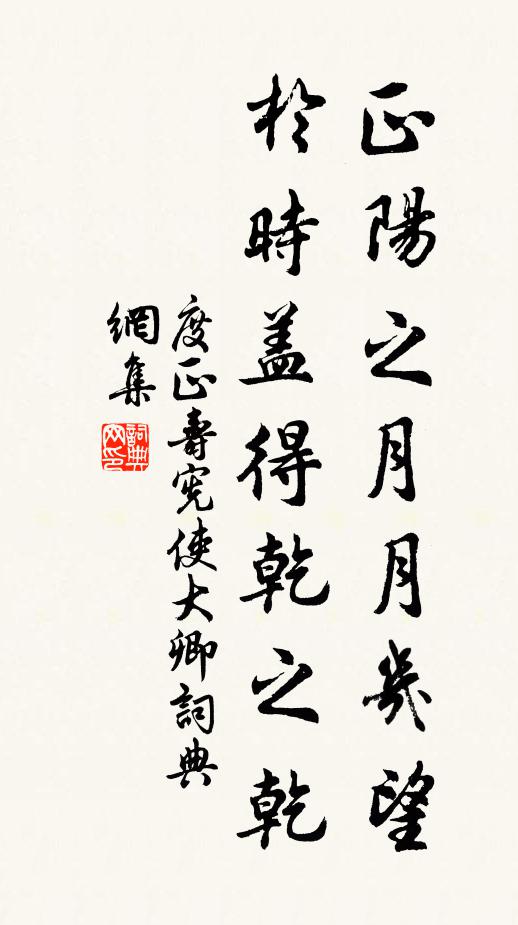 正陽之月月幾望
於時蓋得乾之乾
度正壽宪使大卿詞典
網集
詞典網印